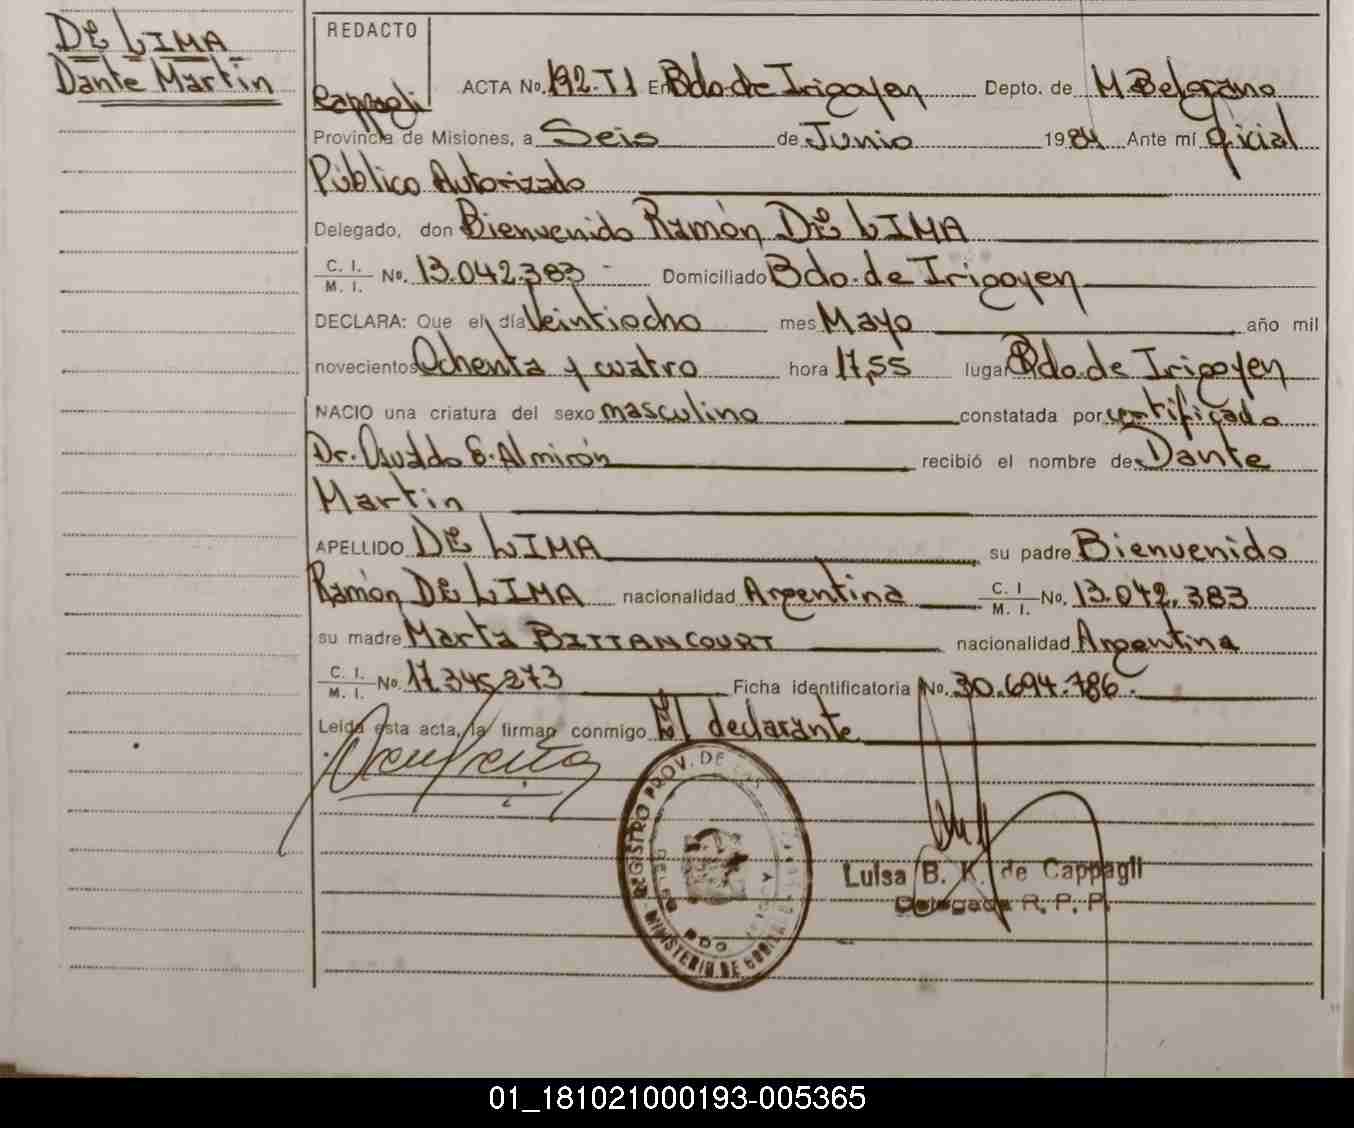 DE LIMA
Dante Martin
REDACTO
Cappagli
ACTA No. 192-T1 En Bdo. de Irigoyen Depto. de M. Belgrano
Provincia de Misiones, a Seis de Junio 1984 Ante mí Oficial
Público Autorizado
Delegado, don Bienvenido Ramón DE LIMA
C. I. / M. I. No. 13.042.383 - Domiciliado Bdo. de Irigoyen
DECLARA: Que el día Veintiocho mes Mayo año mil
novecientos Ochenta y cuatro hora 17,55 lugar Bdo. de Irigoyen
NACIO una criatura del sexo masculino constatada por certificado
Dr. Osvaldo E. Almirón recibió el nombre de Dante
Martin
APELLIDO DE LIMA su padre Bienvenido
Ramón DE LIMA nacionalidad Argentina C. I / M. I. No. 13.042.383
su madre Marta BITTANCOURT nacionalidad Argentina
C. I. / M. I. No 17.345.273 Ficha identificatoria No. 30.694.786.
Leida esta acta, la firman conmigo El declarante
REGISTRO PROV. DE LAS
MINISTERIO DE
BDO
Luisa B. K. de Cappagli
Delegada R. P. P.
01_181021000193-005365